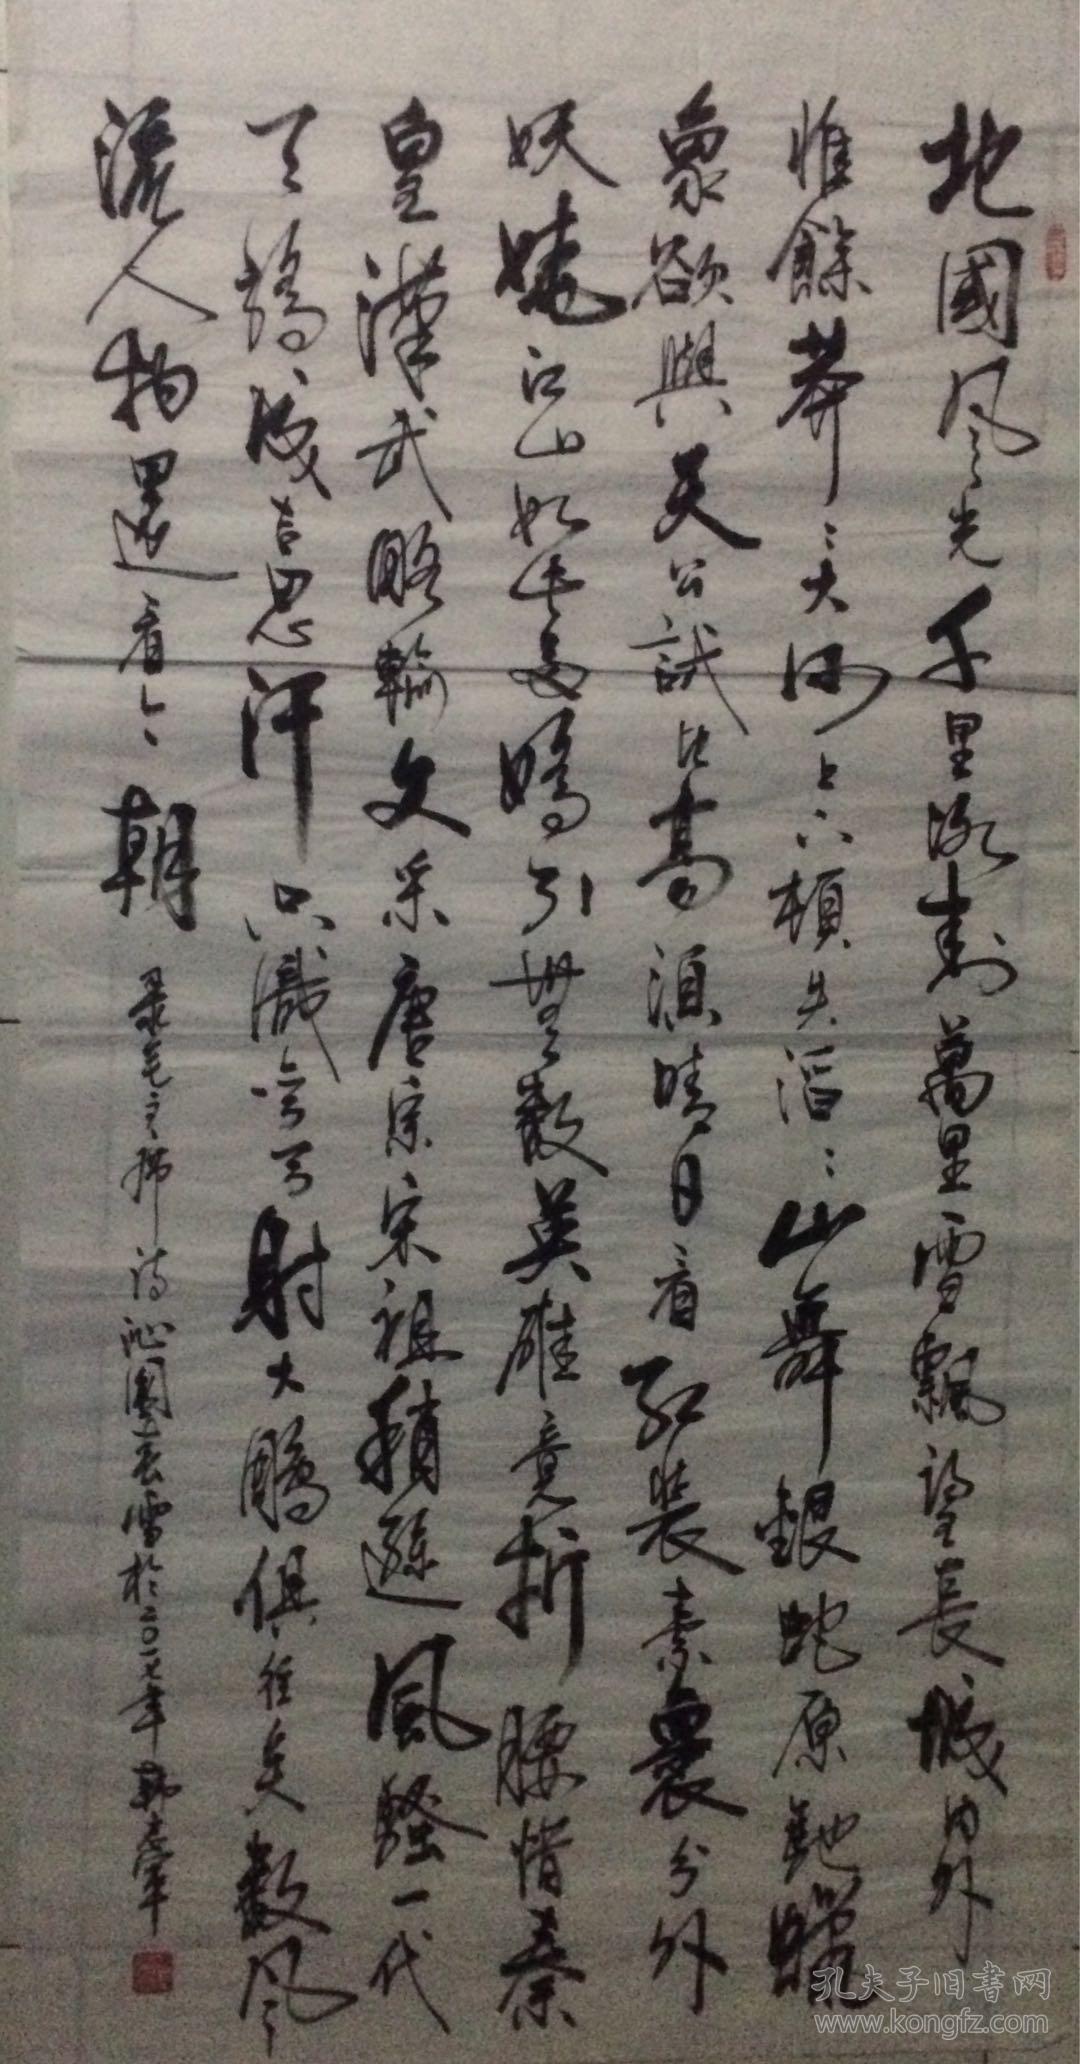 北國风光千里冰封萬里雪飄望長城内外
惟餘莽〻大河上下頓失滔〻山舞銀蛇原馳蠟
象欲與天公試比高須晴日看紅裝素裹分外
妖嬈江山如此多嬌引無數英雄竟折腰惜秦
皇漢武略輸文采唐宗宋祖稍遜風騷一代
天驕成吉思汗只識弯弓射大鵰俱往矣數风
流人物還看今朝 录毛主席诗沁園春雪於二〇一七年
孔夫子旧书网
www.kongfz.com